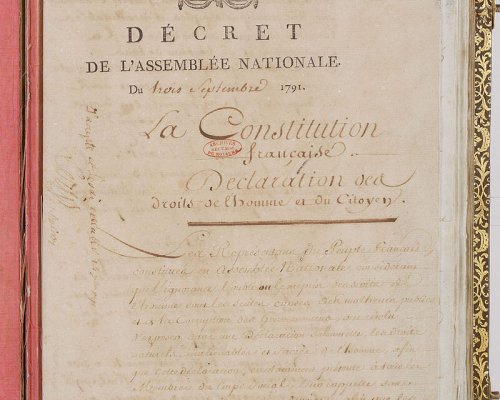 DÉCRET
DE L'ASSEMBLÉE NATIONALE.
Du trois Septembre 1791.
La Constitution
française.
ARCHIVES
Déclaration des
droits de l'homme et du Citoyen.
Les Représentans du Peuple Français
constitués en Assemblée Nationale, considérant
que l'ignorance, l'oubli ou le mépris des droits de
l'homme sont les seules causes des malheurs publics
et de la Corruption des Gouvernemens, ont résolu
d'exposer dans une Déclaration Solennelle, les droits
naturels, inaliénables et Sacrés de l'homme, afin
que cette déclaration, constamment présente à tous les
Membres du Corps Social, leur rappelle sans